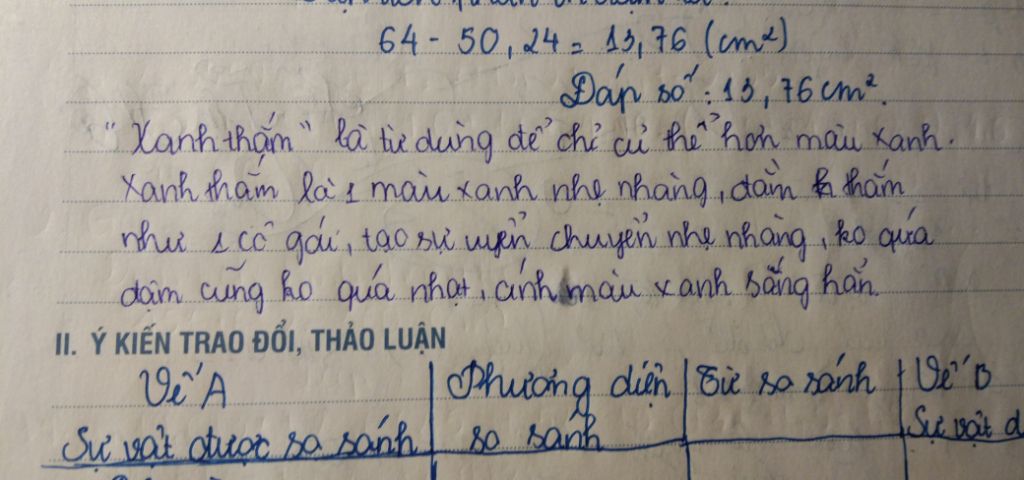 64 - 50,24 = 13,76 (cm²)
Đáp số : 13,76 cm².
"Xanh thẳm" là từ dùng để chỉ cụ thể hơn màu xanh.
Xanh thẳm là 1 màu xanh nhẹ nhàng, đằm thắm
như 1 cô gái, tạo sự uyển chuyển nhẹ nhàng, ko quá
đậm cũng ko quá nhạt, ánh màu xanh sẵng hẳn.
II. Ý KIẾN TRAO ĐỔI, THẢO LUẬN
Vế A | Phương diện | Từ so sánh | Vế B
Sự vật được so sánh | so sánh | Sự vật